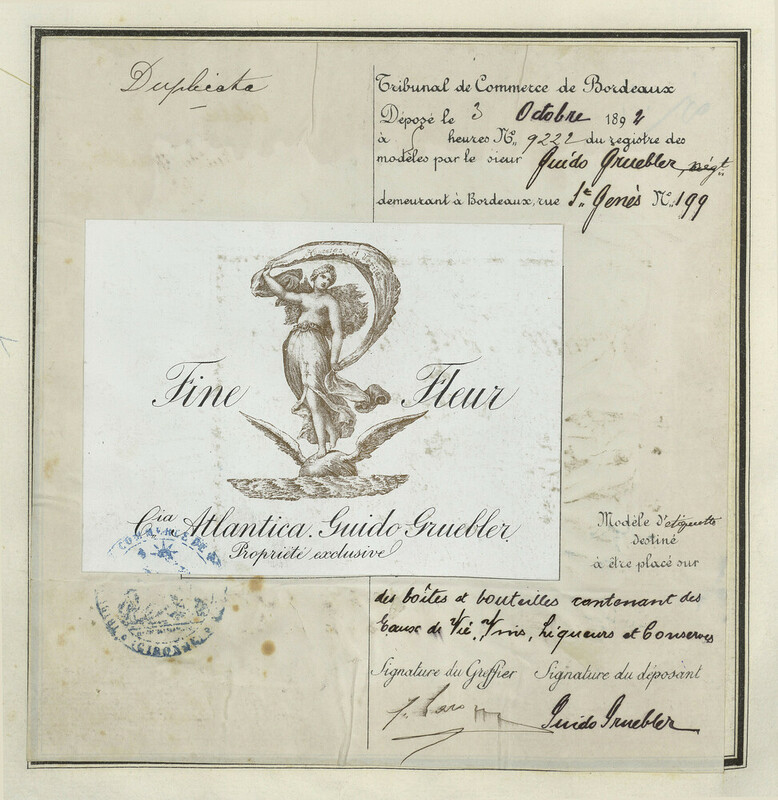 Duplicata
Tribunal de Commerce de Bordeaux
Déposé le 3 Octobre 1892
à heures No. 9222 du registre des
modèles par le sieur Guido Gruebler, négt.
demeurant à Bordeaux, rue Ste. Genès No. 199
Fine Fleur
Cia Atlantica. Guido Gruebler.
Propriété exclusive
Modèle d'étiquette
destiné
à être placé sur
des boîtes et bouteilles contenant des
Eaux de Vie, Vins, Liqueurs et Conserves
Signature du Greffier Signature du déposant
Guido Gruebler
COMMERCE DE
GIRONDE